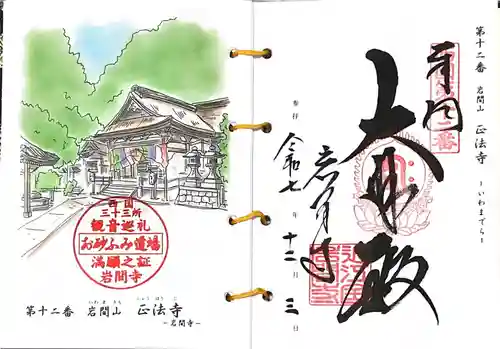 西国
三十三所
観音巡礼
お砂ふみ道場
満願之証
岩間寺
いわ ま さん しょう ほう じ
第十二番 岩間山 正法寺
-岩間寺-
第十二番 岩間山 正法寺 -いわまでら-
西国
大悲殿
岩間寺
参拝 令和七年十二月三日